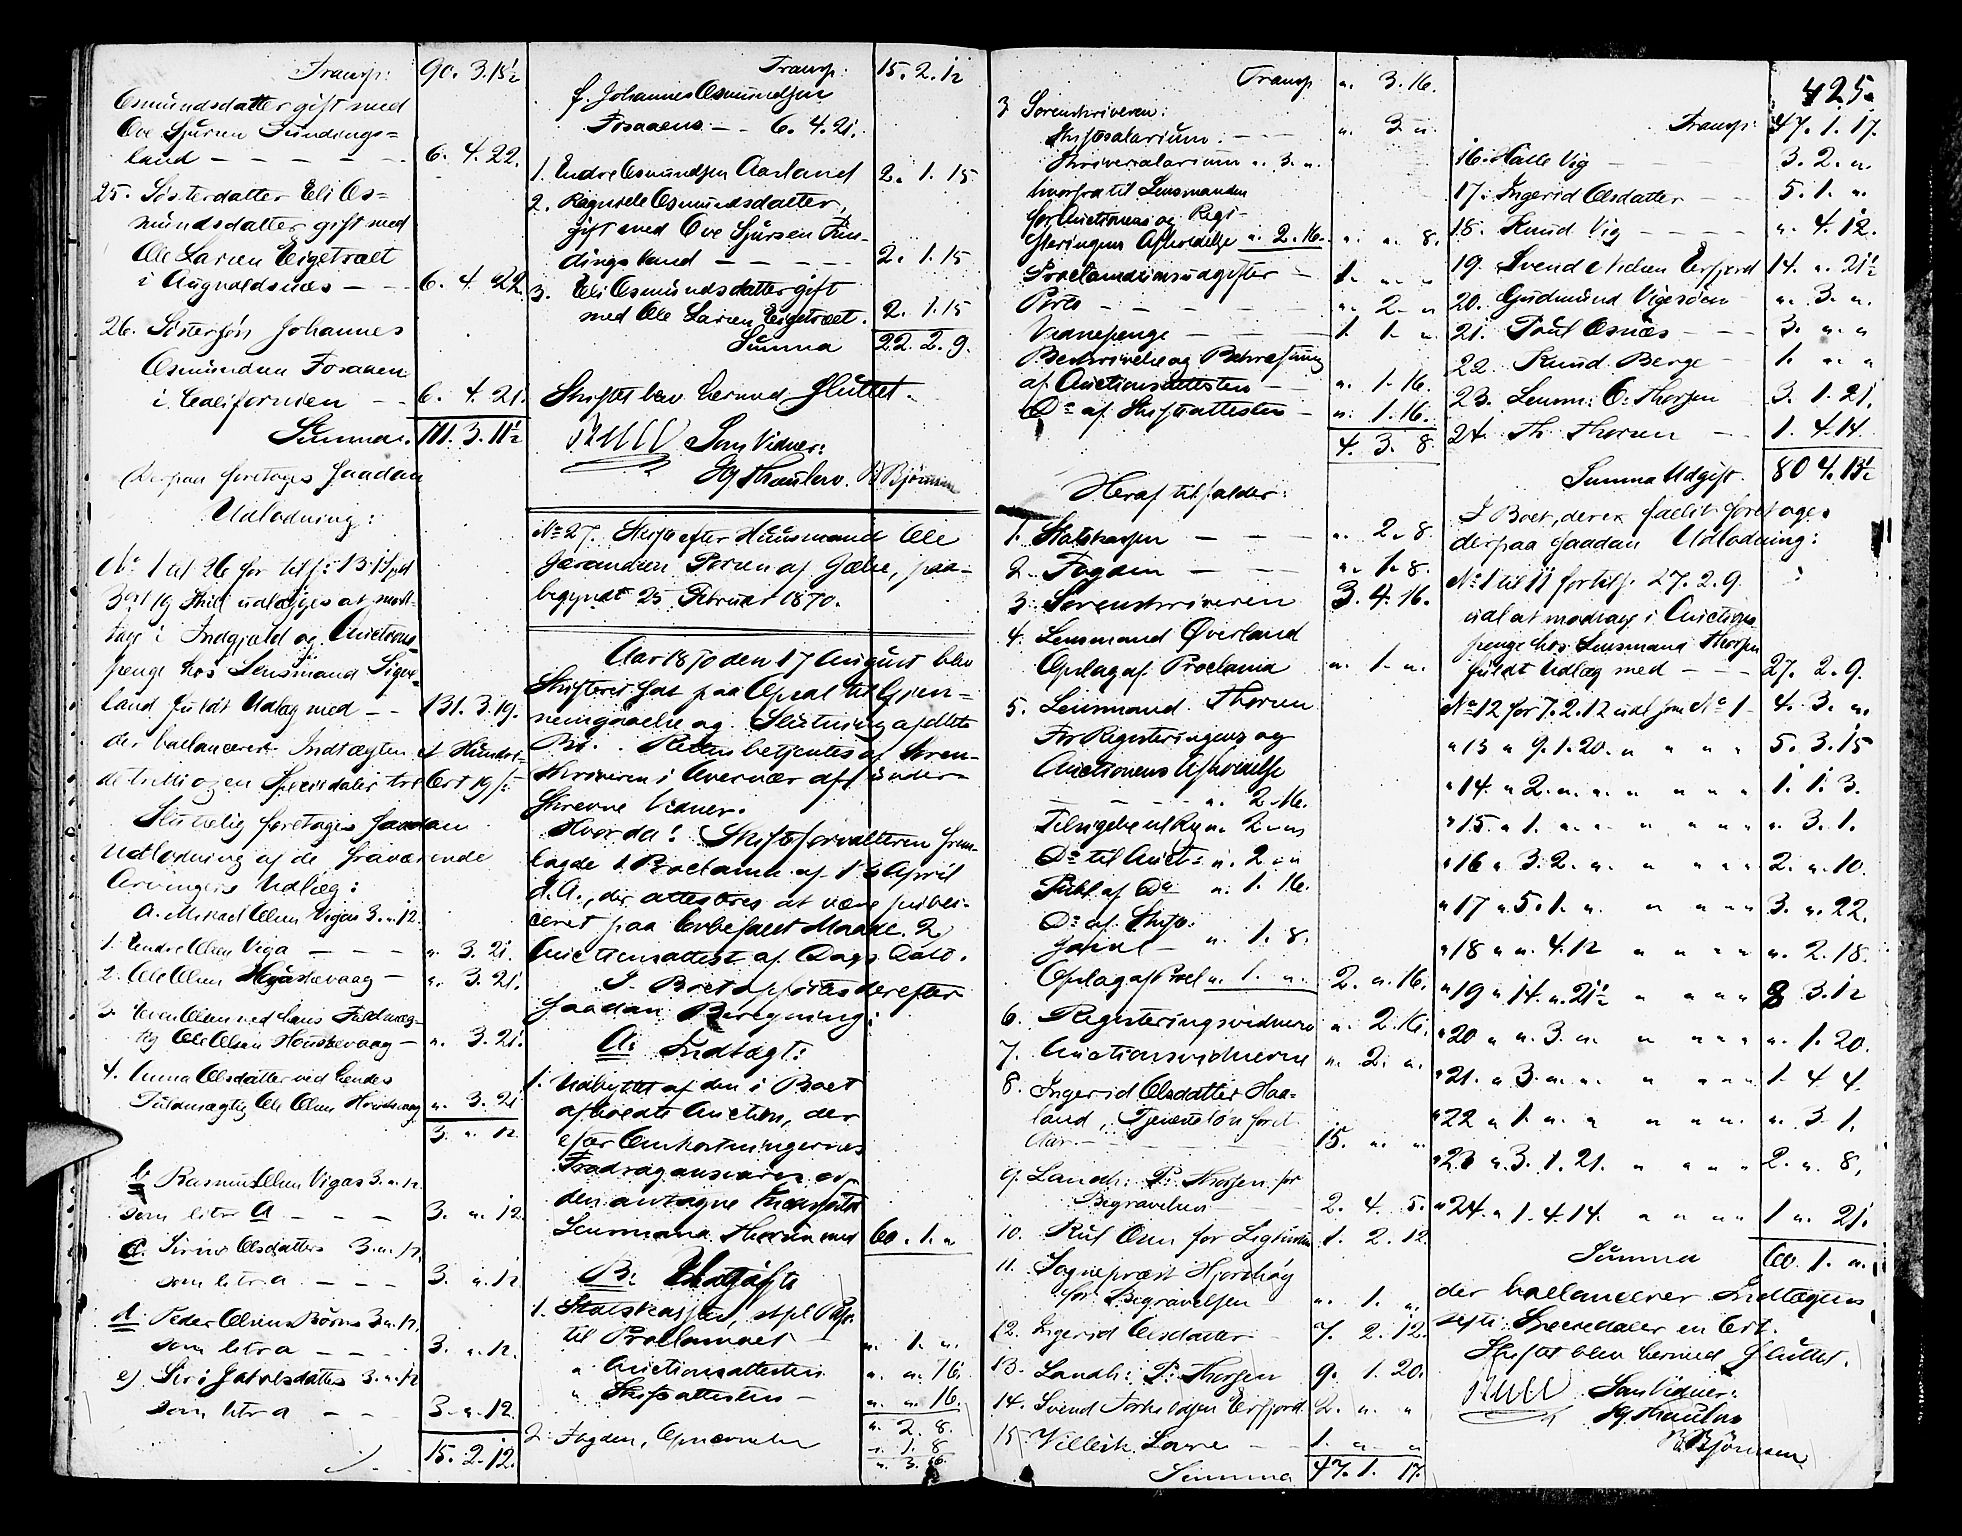 Transp: 90. 3. 15½
Osmundsdatter gift med
Ove Sjursen Fundings=
land — — — — — 6. 4. 22.
25. Søsterdatter Eli Os=
mundsdatter gift med
Ole Larsen Eigetvæt
i Augvaldsnæs — — 6. 4. 22.
26. Søstersøn Johannes
Osmundsen Fosanen
i Californien — — 6. 4. 21.
Summa. 3. 11½
Derpaa foretages saadan
Udlodning:
No 1 til 26 for tils: 131 Spd
3 ort 19 Skill udlægges at mod-
tage i Indgjæld og Auctions
penge hos Lensmand
land fuldt Udlæg med — — 131. 3. 19.
der ballancerer Indtægten et Hundre-
de tretti og en Speciedaler tre Ort 19 s:
Sluttelig foretages saadan
Udlodning af de fraværende
Arvingers Udlæg:
a. Mikael Olsen Vigas 3. „. 12.
1. Endre Olsen Viga — — — „. 3. 21.
2. Ole Olsen — „. 3. 21.
3. Olsen ved hans Fuldmæg-
tig Ole Olsen — „. 3. 21.
4. Anna Olsdatter ved hendes
Fuldmægtig Ole Olsen „. 3. 21
3. „. 12.
b Rasmus Olsen Vigas 3. „. 12.
som litr a — — — 3. „. 12.
c. Olsdatters 3. „. 12.
som litr a — — — 3. „. 12
d. Peder Olsens Børns 3. „. 12.
som litr a — — — 3. „. 12.
e) Siri 3. „. 12
som litr a — — 3. „. 12.
15. 2. 12.
Transp: 15. 2. 12
f. Johannes Osmundsen
Fosaaens — — 6. 4. 21.
1. Endre Osmundsen Aarland 2. 1. 15
2. Osmundsdatter,
gift med Ove Sjursen Fun-
dingsland — — — — — 2. 1. 15
3. Eli Osmundsdatter gift
med Ole Larsen Eigetvæt. 2. 1. 15
Summa 22. 2. 9.
Skiftet blev hermed sluttet.
Som Vidner:
B Bjørnsen
No 27. Skifte efter Huusmand Ole
af Jælse, paa-
begyndt 25 Februar 1870.
Aar 1870 den 17 August blev
Skifteret sat paa Opsal til Gjen-
nemgaaelse og Slutning af dette
Bo. Retten betjentes af Soren-
skriveren i Overvær af under-
skrevne Vidner.
Hvorda! Skifteforvalteren frem-
lagde 1. Proclama af 13 April
d. A., der attesteres at være publi-
ceret paa lovbefalet Maade. 2
Auctionsattest af Dags Dato.
I Boet opførtes derefter
saadan Beregning:
A: Indtægt:
1. Udbyttet af den i Boet
afholdte Auction, der
efter Omkostningernes
Fradrag
den antagne
Lensmand Thorsen med 60. 1. „
B: Udgift
1. Statskassen, stpl. Papir
til Proclamaet „. 1. „.
„ Auctionsattesten „. „. 16.
„ Skifteattesten — „. „. 16.
„. 2. 8.
2. Fogden, „. 1. 8
„. 3. 16.
Transp „. 3. 16.
3 Sorenskriveren:
Skiftesalarium. — — — „. 3 „.
Skriversalarium „. 3. „.
hvorfra til Lensmanden
for Auctionens og Regi-
steringens Afholdelse „. 2. 16. „. „. 8.
Proclamationsudgifter — 1. „. „
Porto — — — — — „. 2. „
Vidnepenge — — — 1. 1. „.
Beskrivelse og Bekræftning
af Auctionsattesten — — „. 1. 16.
Do af Skifteattesten — „. 1. 16.
4. 3. 8.
Heraf tilfalder:
1. Statskassen — — — „. 2. 8.
2. Fogden — — — „. 1. 8.
3 Sorenskriveren 3. 4. 16.
4. Lensmand Øverland
Oplag af Proclama „. 1. „.
5. Lensmand Thorsen
For Registeringens og
Auctionens Afholdelse
— — — — „. 2 16.
Tilsigelse til Reg „. 2. „
Do til Auct: „. 2 „
Publ af Do „. 1. 16.
Do af Skifte
— „. 1. 8.
Oplag af Procl „. 1. „. 2. „. 16.
6. Registeringsvidnerne „. 2. 16.
7. Auctionsvidnerne „. 2. „.
8. Ingerid Olsdatter Haa-
land, Tjenestløn for et
Aar — — — — — 15. „. „.
9. Landh: P: Thorsen for
Begravelsen — — — 2. 4. 5.
10. Osen for 1. 2. 12.
11. Sognepræst
for Begravelsen — „. 1. „.
12. Ingerid Olsdatter — 7. 2. 12.
13. Landh: P: Thorsen 9. 1. 20.
14. Svend Erfjord 2. „. „
15. — — 1. „. „
Summa 47. 1. 17.
425.
Transp: 47. 1. 17.
16. Halle Vig — — — — 3. 2. „.
17. Ingerid Olsdatter — — 5. 1. „.
18. Knud Vig — — — — „. 4. 12.
19. Svend Nielsen Erfjord 14. „. 21½
20. Gudmund Vigesøen — „. 3. „.
21. Poul Osnæs — — — 3. „. „
22. Knud Berge — — 1. „. „
23. Lensm: C: Thorsen 3. 1. 21.
24. Th. Thorsen — — 1. 4. 14.
Summa Udgift. 80 4. 15½
I Boet, der er fallit foretages
derpaa saadan Udlodning:
No 1 til 11 for tils: 27. 2. 9.
udl at modtage i Auctions
penge hos Lensmand Thorsen
fuldt Udlæg med — — — 27. 2. 9.
No 12 for 7. 2. 12 udl som No 1 — 4. 3. „.
„ 13 „ 9. 1. 20. „ „ „ „ 5. 3. 15
„ 14. „ 2. „. „. „ „ „ „ 1. 1. 3.
„ 15. „ 1. „. „ „ „ „ „ „. 3. 1.
„ 16 „ 3. 2. „. „ „ „ „ 2. „. 10.
„ 17 „ 5. 1. „. „ „ „ „ 3. „. 22.
„ 18 „ „. 4. 12 „ „ „ „ „. 2. 18.
„ 19 „ 14. „. 21½ „ „ „ „ 8 3. 12
„ 20 „ „. 3. „. „ „ „ „ „. 1. 20.
„ 21. „ 3. „. „. „ „ „ „ 1. 4 4.
„ 22 „ 1. „. „ „ „ „ „. „. 3. 1.
„ 23 „ 3. 1. 21. „ „ „ „ 2. „. 8.
„ 24. „ 1. 4. 14. „ „ „ „ 1 „. 21.
Summa 60. 1. „.
der ballancerer Indtægten
Speciedaler en Ort.
Skiftet blev hermed sluttet.
Som Vidner:
B. Bjørnsen